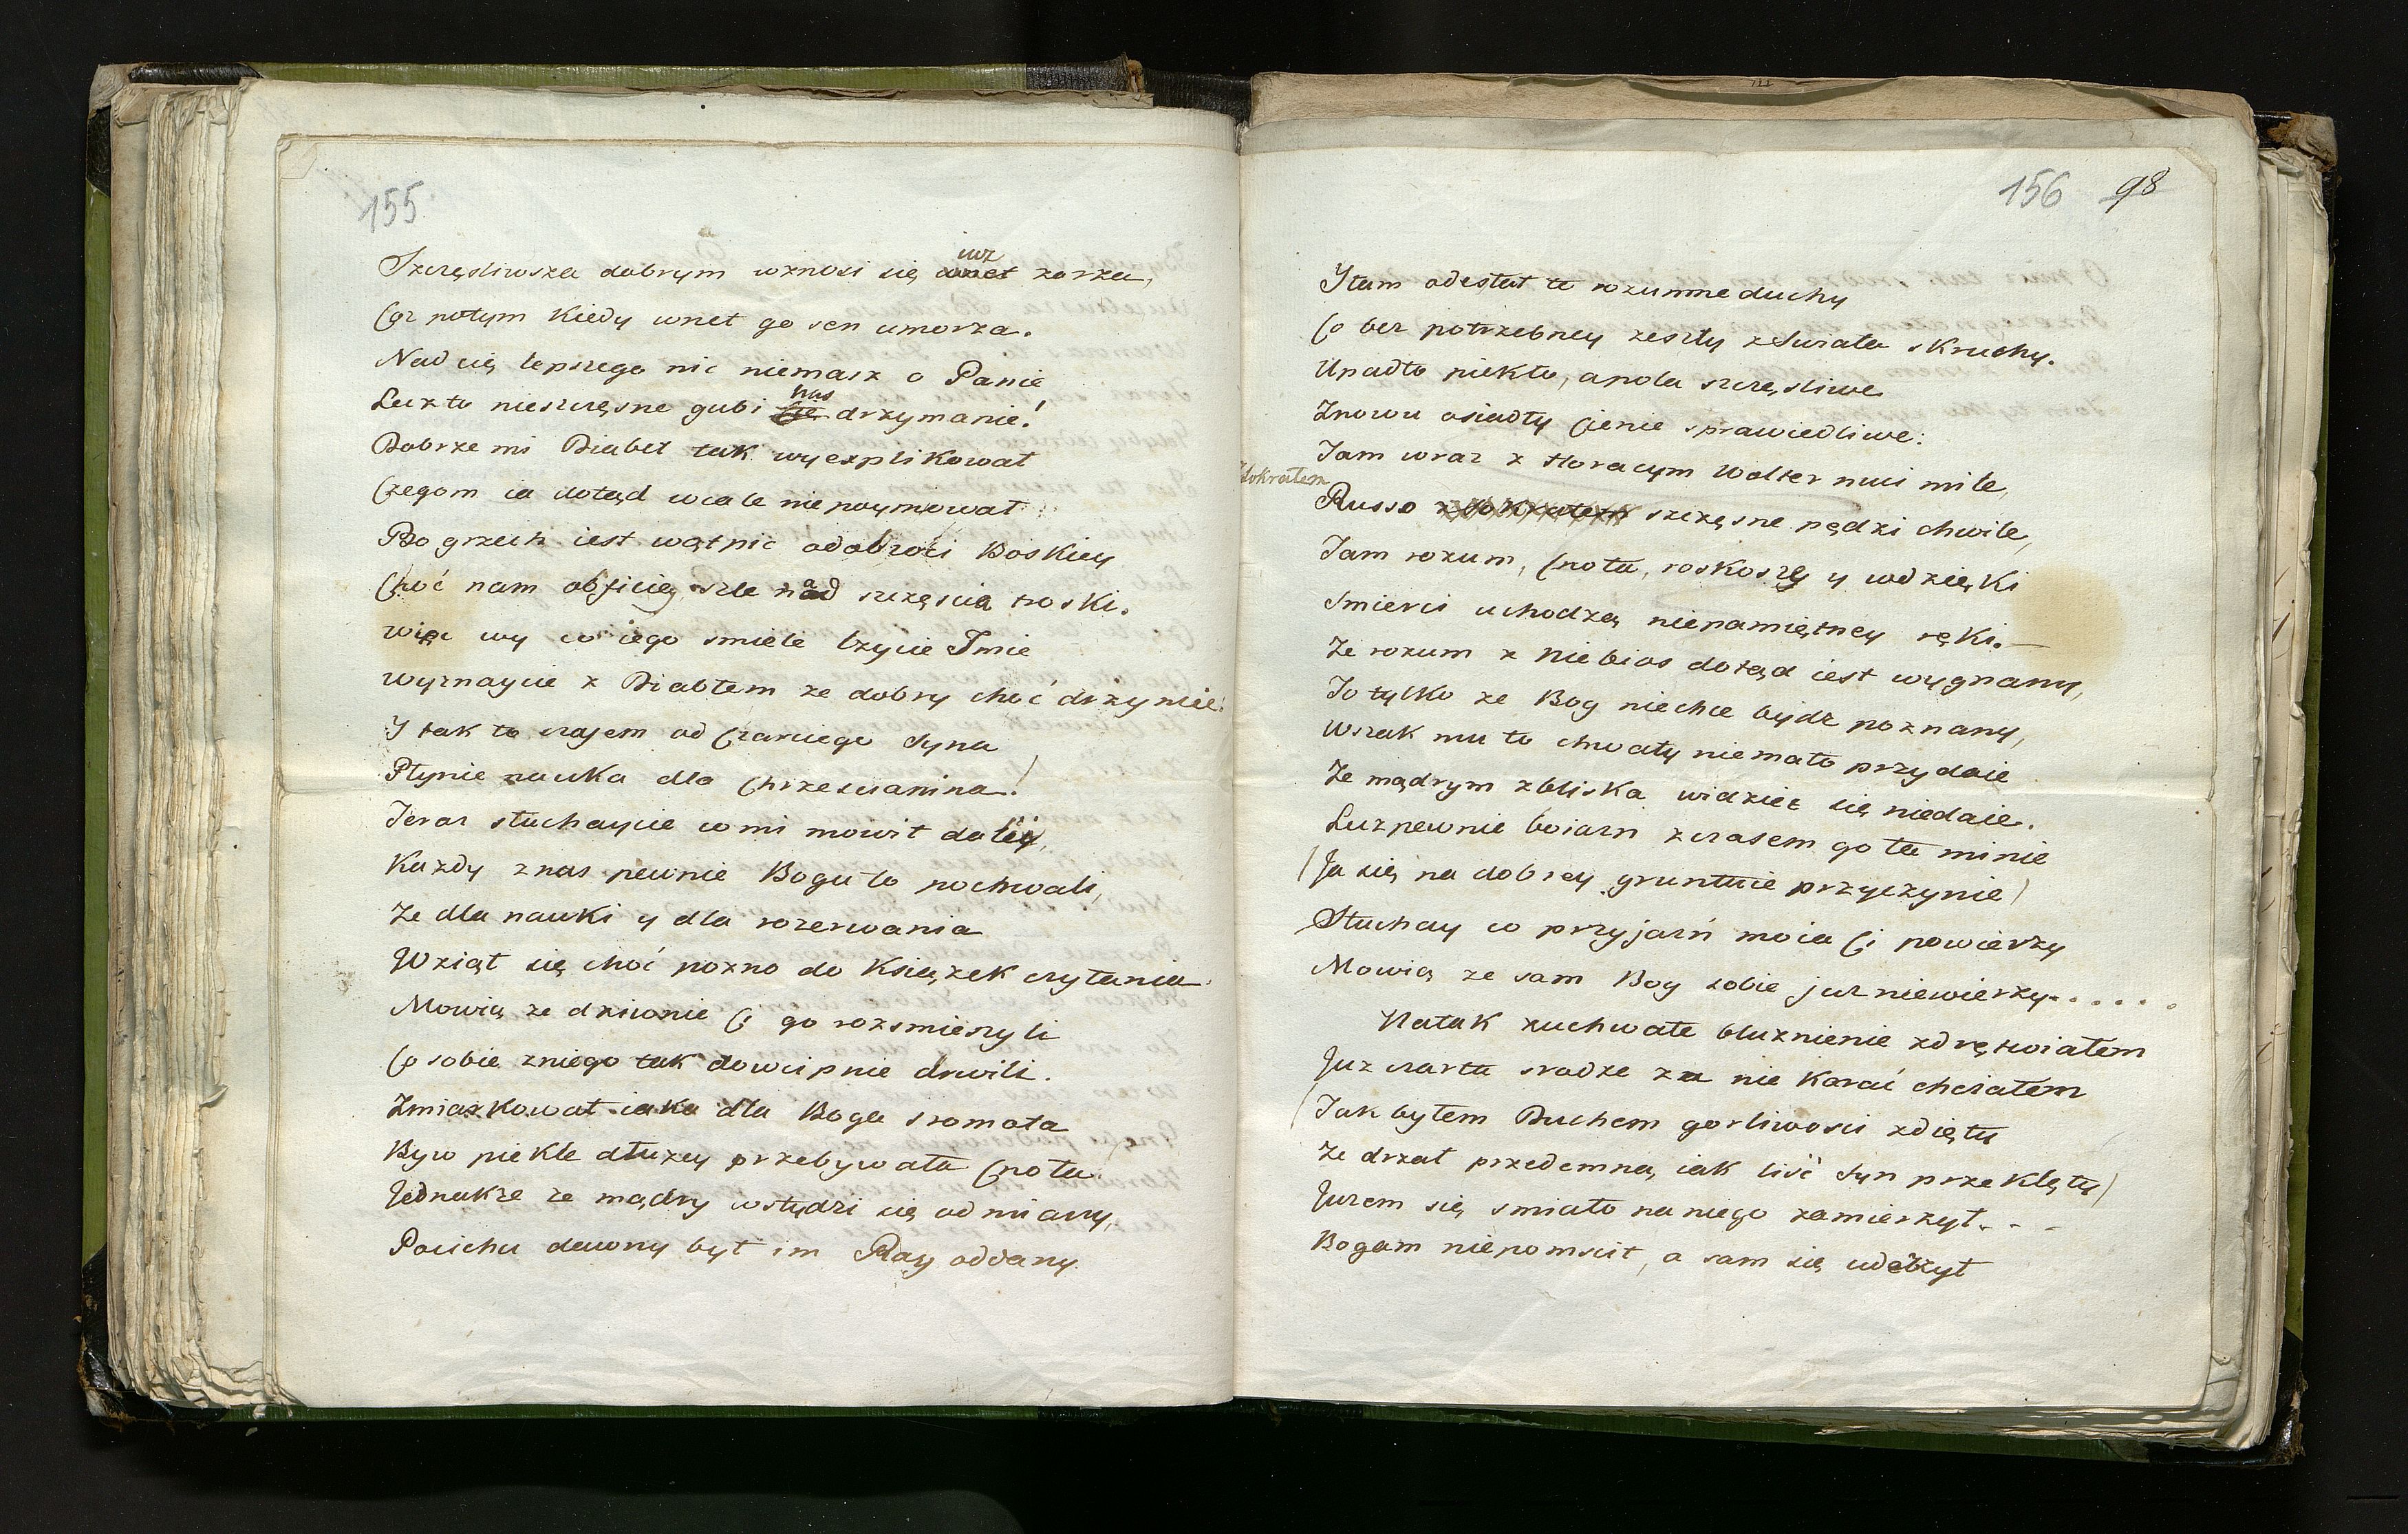 155
Szczęsliwsza dobrym wznosi się iuz zorza,
Coz potym kiedy wnet go sen umorza.
Nad cię lepszego nic niemasz o Panie
Lecz to nieszczęsne gubi nas drzymanie!
Dobrze mi Diabeł tak wyexplikował
Czegom ia dotąd wcale niepoymował
Bo grzech iest wątpic o dobroci Boskiey
Choć nam obficiey szle nad szczęscia troski.
więc wy co iego smiele lzycie Imie
wyznaycie z Diabłem ze dobry choć drzymie!
Y tak to czasem od Czarciego Syna
Płynie nauka dla Chrzescianina!
Teraz słuchaycie co mi mowił daley,
Kazdy z nas pewnie Bogu to pochwali,
Ze dla nauki y dla rozerwania
Wziął się choć pozno do Książek czytania.
Mowią ze dziwnie Ci go rozsmieszyli
Co sobie z niego tak dowcipnie drwili.
Zmiarkował iaka dla Boga sromota
By w piekle dłuzey przebywała Cnota.
Jednakze ze mądry wstydzi się odmiany,
Pocichu dawny był im Ray oddany
156 98
Y tam odesłał te rozumne duchy
Co bez potrzebney zeszły z Swiata skruchy.
Upadło piekło, a pola szczęsliwe
Znowu osiadły Cienie sprawiedliwe:
Tam wraz z Horacym Wolter nuci mile,
Sokratem
Russo z Sokratem szczęsne pędzi chwile,
Tam rozum, Cnota, roskoszy y wdzięki
Smierci uchodzą niepamiętney ręki.—
Ze rozum z Niebios dotąd iest wygnany,
To tylko ze Bog niechce bydz poznany,
Wszak mu to chwały niemało przydaie
Ze mądrym zbliska widziec się niedaie.
Lecz pewnie boiazn z czasem go ta minie
(Ja się na dobrey gruntuie przyczynie)
Słuchay co przyjazń moia Ci powierzy
Mowią ze sam Bog sobie juz niewierzy......
Na tak zuchwałe bluznienie zdrętwiałem
Juz czarta srodze za nie karać chciałem
(Tak byłem Duchem gorliwosci zdięty
Ze drzał przedemną, iak liść Syn przeklęty)
Juzem się smiało na niego zamierzył. - -
Bogam niepomscił, a sam się uderzył